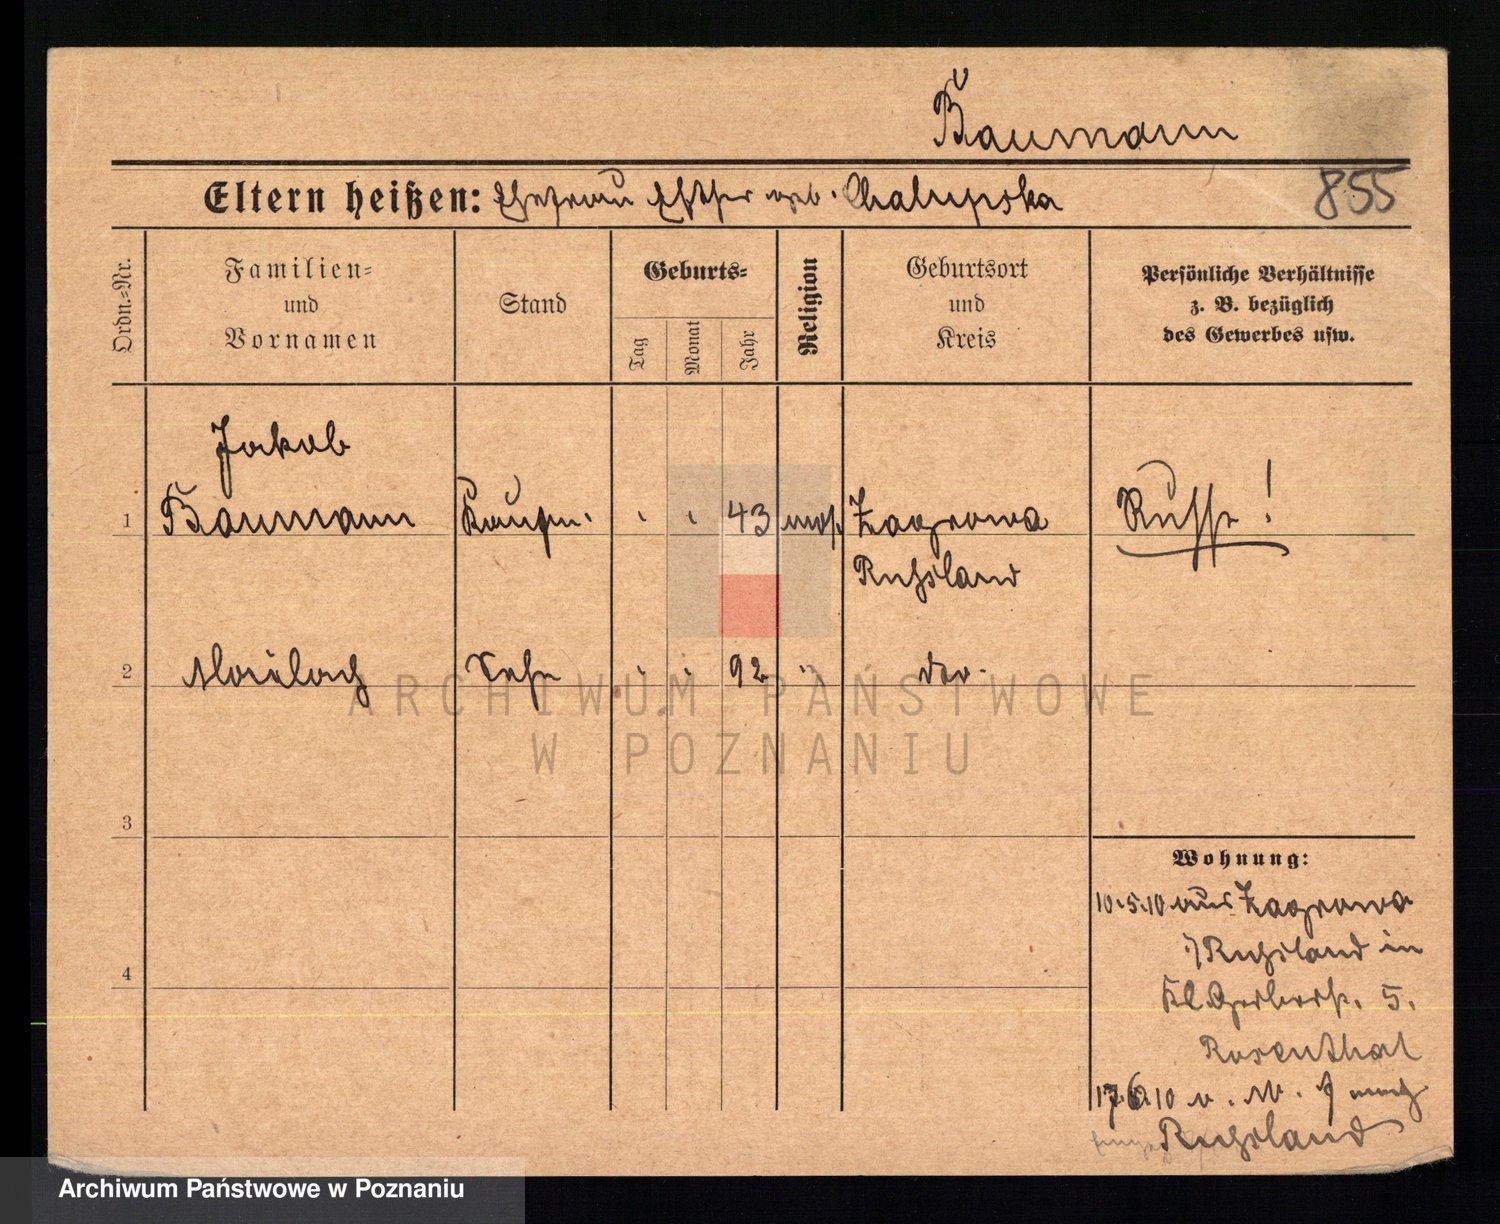 Baumann
Eltern heißen: Ehefrau Esther geb. Chalupska
855
Ordn.=Nr.
Familien=
und
Vornamen
Stand
Geburts=
Tag
Monat
Jahr
Religion
Geburtsort
und
Kreis
Persönliche Verhältnisse
z. B. bezüglich
des Gewerbes usw.
Jakob
1 Baumann Kaufm. 43 mos. Zagorowa Russe!
Russland
2 Sohn 92 " do.
3
4
Wohnung:
10.5.10 aus Zagorowa
i/ Russland in
Kl. Gerberst. 5.
Rosenthal
17.6.10 nach
Russland
ARCHIWUM PAŃSTWOWE
W POZNANIU
Archiwum Państwowe w Poznaniu